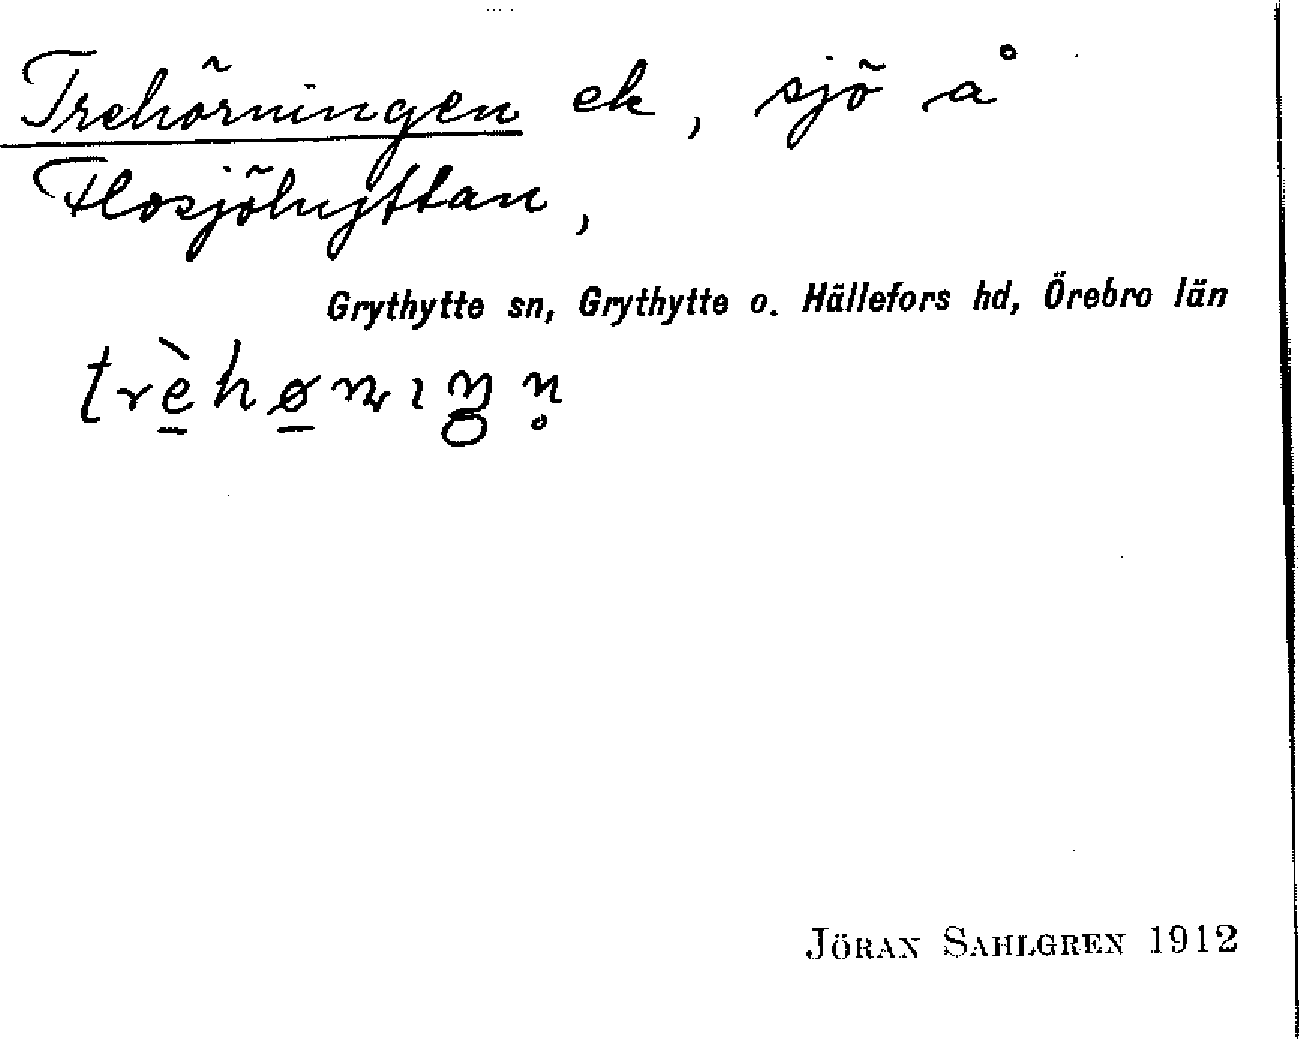 Trehörningen ek, sjö å
Flosjöhyttan,
Grythytte sn, Grythytte o. Hällefors hd, Örebro län
trèhønıŋn̥
JÖRAN SAHLGREN 1912